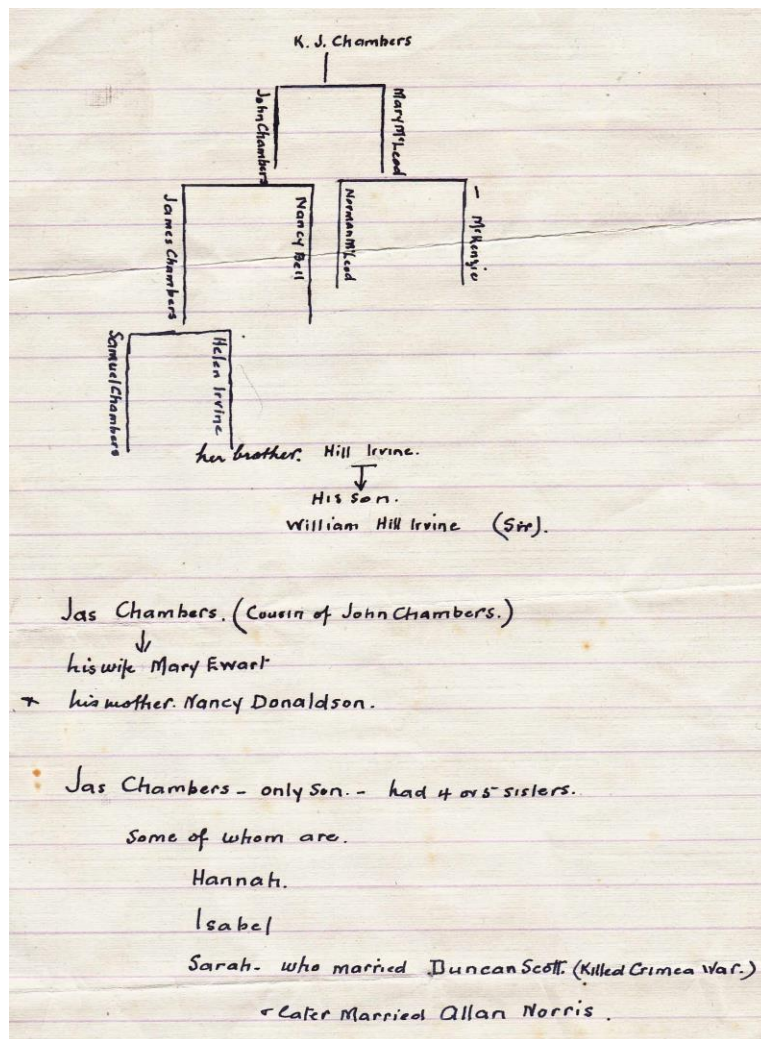 K. J. Chambers
John Chambers
Mary McLeod
James Chambers
Nancy Bell
Norman McLeod
- McKenzie
Samuel Chambers
Helen Irvine
her brother. Hill Irvine.
His son.
William Hill Irvine (Sir).
Jas Chambers. (Cousin of John Chambers.)
his wife Mary Ewart
* his mother. Nancy Donaldson.
Jas Chambers - only Son. - had 4 or 5 sisters.
Some of whom are.
Hannah.
Isabel
Sarah - who married Duncan Scott. (Killed Crimea War.)
+ later Married Allan Norris.